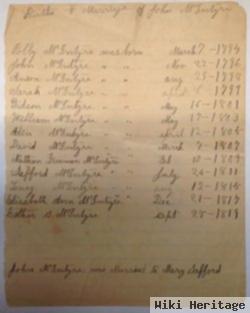 Births & Marriage of John McIntyre
Polly McIntyre was born March 7 - 1794
John McIntyre " " Nov 22 - 1796
Anson McIntyre " " Aug 25 -
Sarah McIntyre " " April 8 - 1799
Gideon McIntyre " " May 15 - 1801
William McIntyre " " May 17 - 1803
Alex McIntyre " " April 12 - 1805
David McIntyre " " March 9 - 1807
Nathan McIntyre " 10 - 1809
Clefford McIntyre " " July 20 - 1811
McIntyre " " 12 - 1815
Elizabeth Ann McIntyre " Dec 21 - 1817
Esther S. McIntyre " Sept 28 - 1819
John McIntyre was Married to Mary Clefford
Wiki Heritage